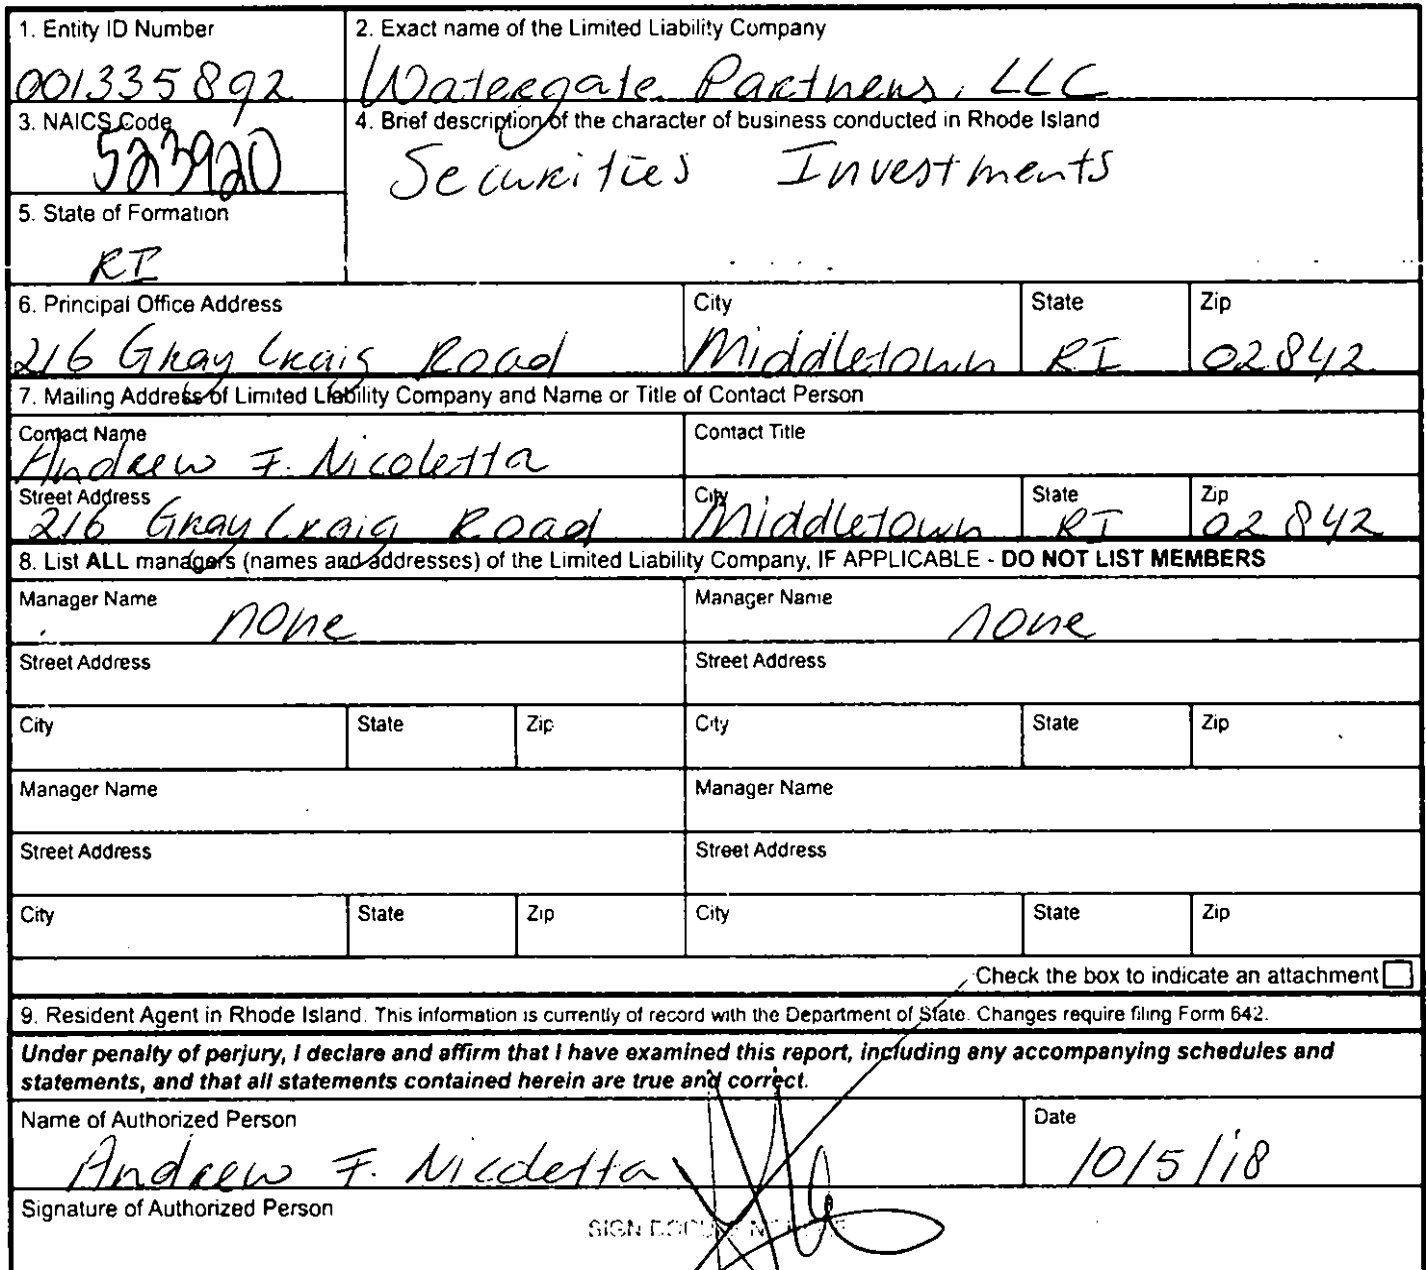 1. Entity ID Number
001335892
2. Exact name of the Limited Liability Company
Watergate Partners, LLC
3. NAICS Code
523920
4. Brief description of the character of business conducted in Rhode Island
Securities Investments
5. State of Formation
RI
6. Principal Office Address
216 Gray Craig Road
City
Middletown
State
RI
Zip
02842
7. Mailing Address of Limited Liability Company and Name or Title of Contact Person
Contact Name
Andrew F. Nicoletta
Contact Title
Street Address
216 Gray Craig Road
City
Middletown
State
RI
Zip
02842
8. List ALL managers (names and addresses) of the Limited Liability Company, IF APPLICABLE - DO NOT LIST MEMBERS
Manager Name
none
Manager Name
none
Street Address
Street Address
City State Zip City State Zip
Manager Name
Manager Name
Street Address
Street Address
City State Zip City State Zip
Check the box to indicate an attachment
9. Resident Agent in Rhode Island. This information is currently of record with the Department of State. Changes require filing Form 642.
Under penalty of perjury, I declare and affirm that I have examined this report, including any accompanying schedules and
statements, and that all statements contained herein are true and correct.
Name of Authorized Person
Andrew F. Nicoletta
Date
10/5/18
Signature of Authorized Person
SIGN